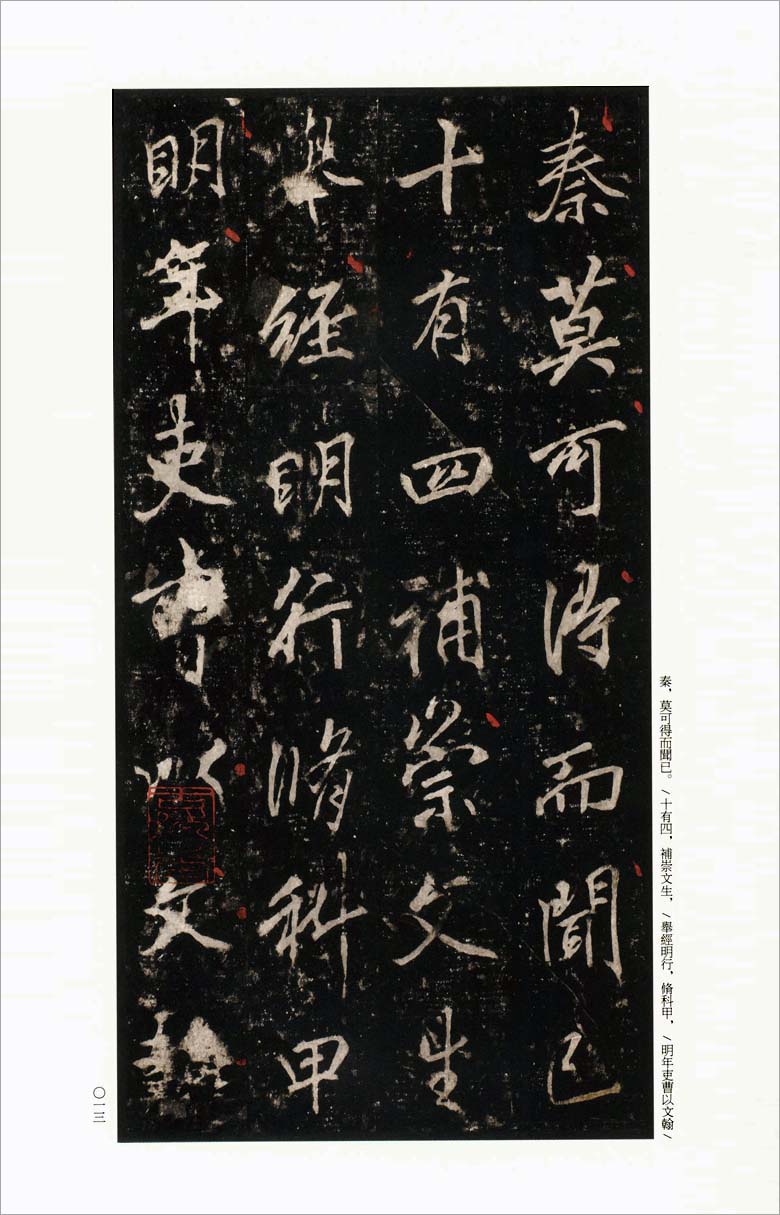 秦莫可得而聞已
十有四補崇文生
舉經明行脩科甲
明年吏曹以文翰
秦，莫可得而聞已。/十有四，補崇文生，/舉經明行，脩科甲，/明年吏曹以文翰/
〇一三